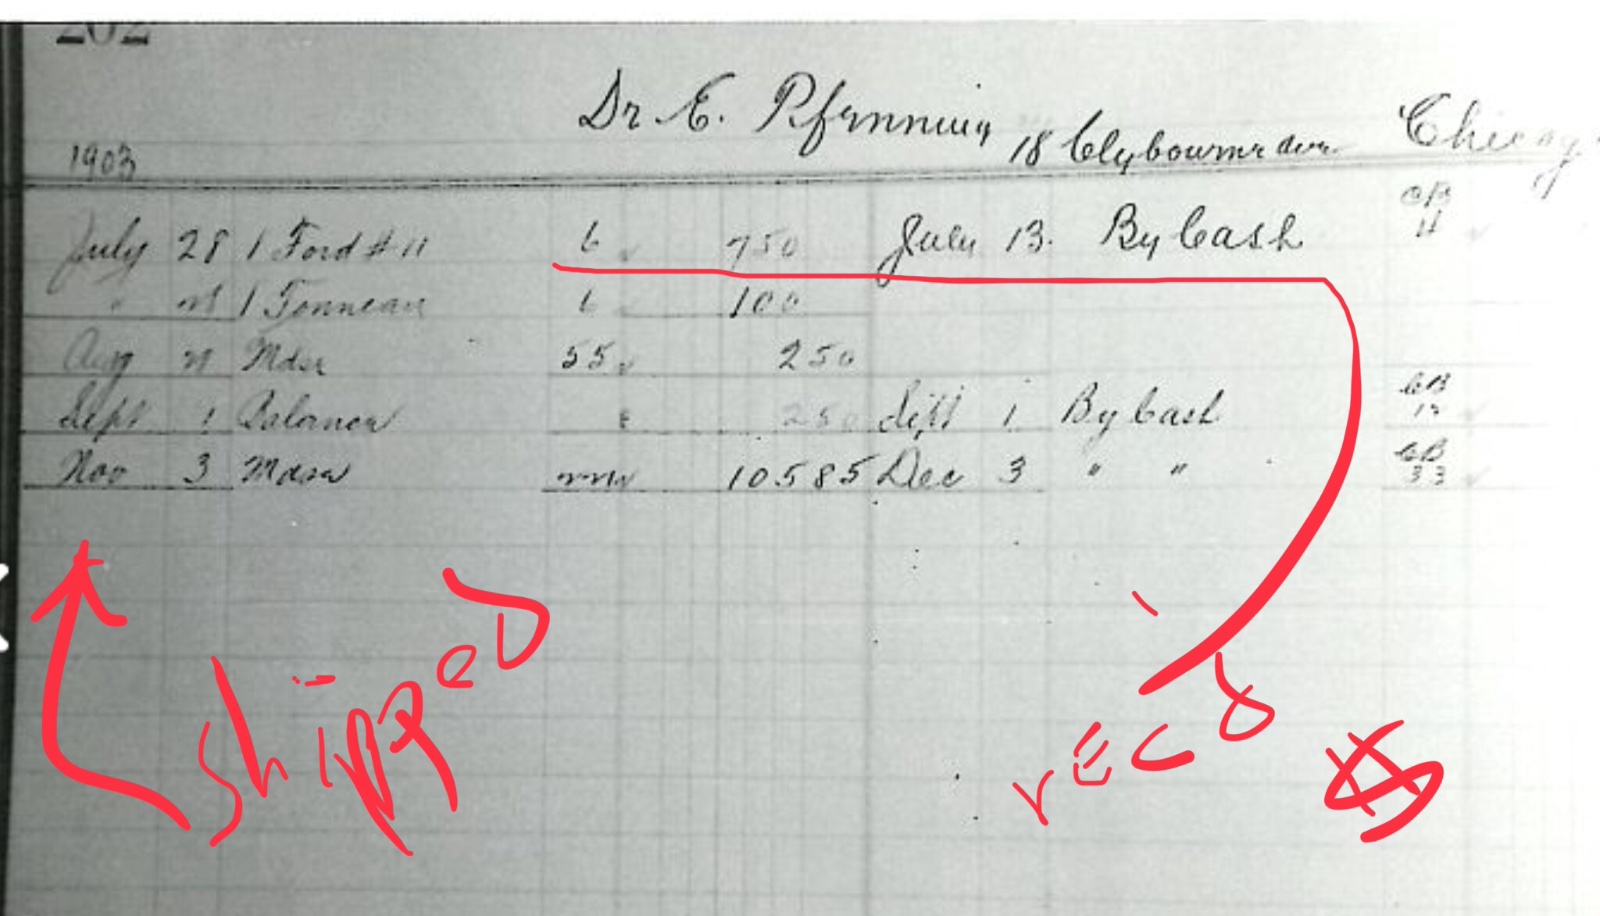 202
Dr E. Pfenning 18 Clybourne ave Chicago
1903
July 28 1 Ford # 11 6 750 July 13. By Cash CB 11
" 1 Tonneau 6 100
Aug Mdse 55 250
Sept 1 Balance 250 Sept 1 By Cash CB
Nov 3 Mdse 10585 Dec 3 " " CB 33
shipped
rEcD $